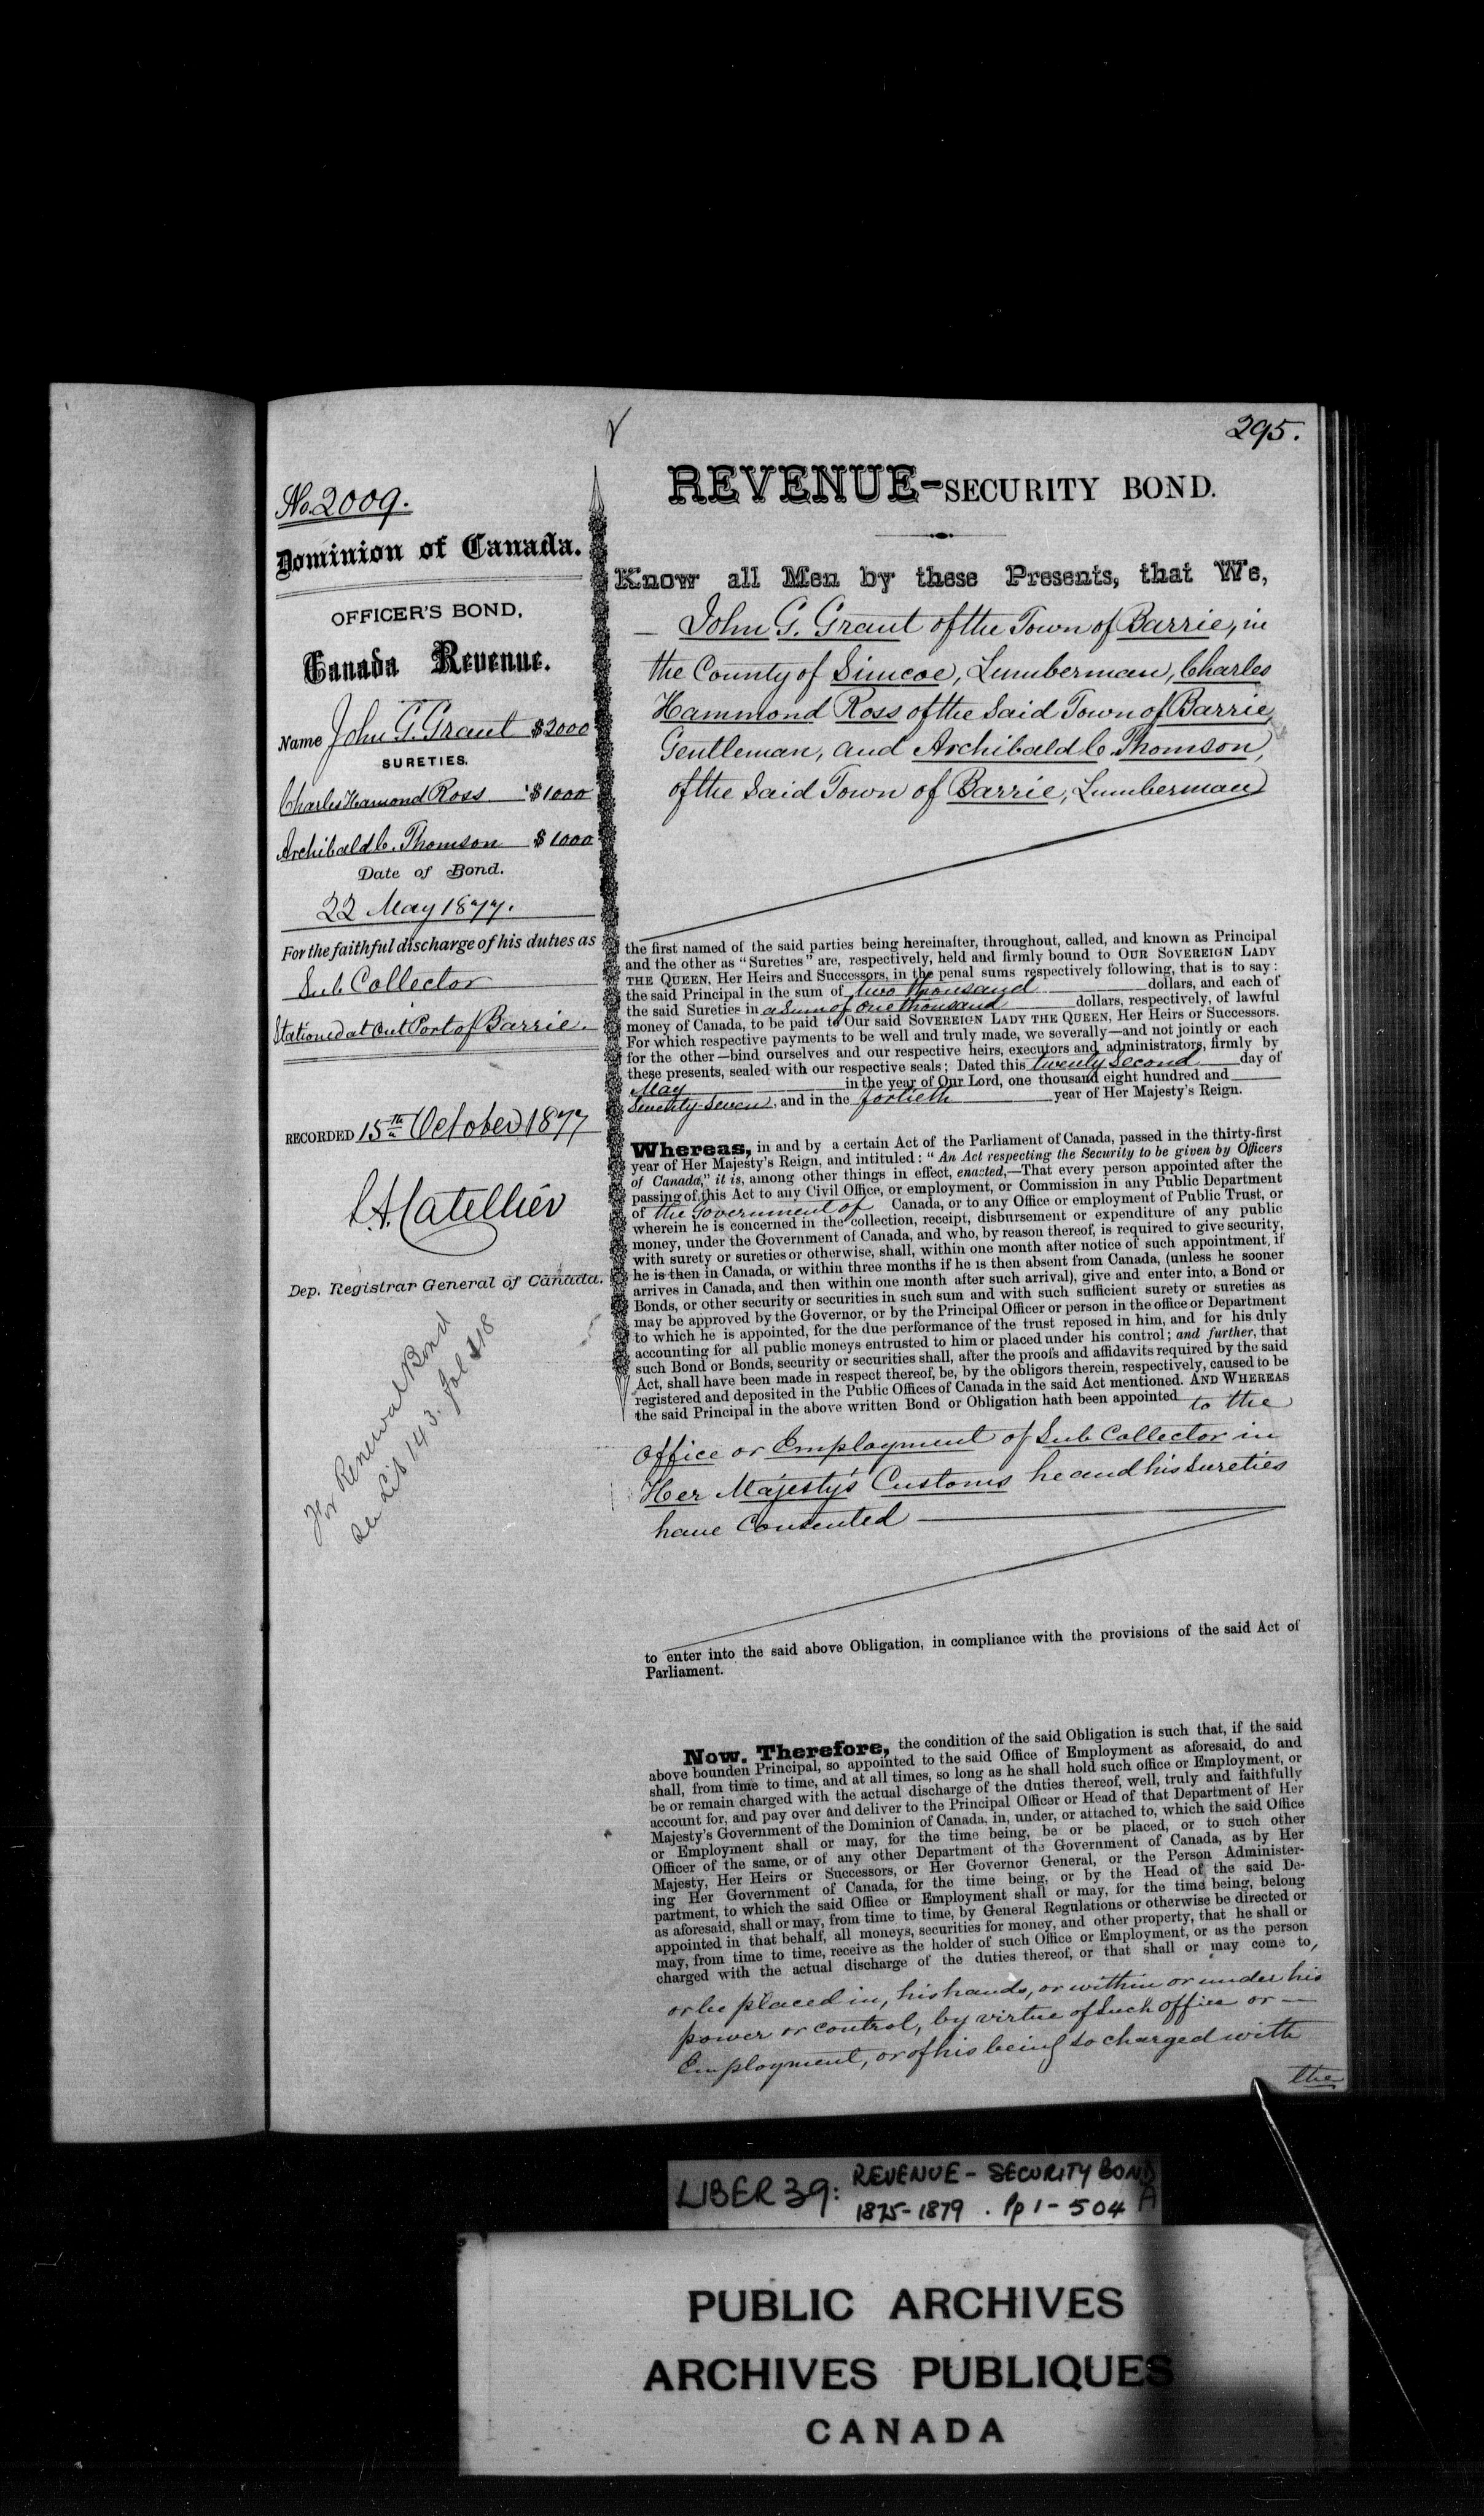 295.
No. 2009.
Dominion of Canada.
OFFICER'S BOND,
Canada Revenue.
Name John G. Grant $2000
SURETIES.
Charles Hamond Ross $1000
Archibald C. Thomson $1000
Date of Bond.
22 May 1877.
For the faithful discharge of his duties as
Sub Collector
Stationed at Out Port of Barrie.
RECORDED 15th October 1877
L. A. Catellier
Dep. Registrar General of Canada.
For Renewal Bond
see Lib 143. fol 318
REVENUE-SECURITY BOND.
Know all Men by these Presents, that We,
— John G. Grant of the Town of Barrie, in
the County of Simcoe, Lumberman, Charles
Hammond Ross of the Said Town of Barrie,
Gentleman, and Archibald C. Thomson,
of the Said Town of Barrie, Lumberman
the first named of the said parties being hereinafter, throughout, called, and known as Principal
and the other as "Sureties" are, respectively, held and firmly bound to OUR SOVEREIGN LADY
THE QUEEN, Her Heirs and Successors, in the penal sums respectively following, that is to say:
the said Principal in the sum of two thousand dollars, and each of
the said Sureties in a Sum of One thousand dollars, respectively, of lawful
money of Canada, to be paid to Our said SOVEREIGN LADY THE QUEEN, Her Heirs or Successors.
For which respective payments to be well and truly made, we severally—and not jointly or each
for the other—bind ourselves and our respective heirs, executors and administrators, firmly by
these presents, sealed with our respective seals; Dated this twenty Second day of
May in the year of Our Lord, one thousand eight hundred and
Seventy-Seven, and in the fortieth year of Her Majesty's Reign.
Whereas, in and by a certain Act of the Parliament of Canada, passed in the thirty-first
year of Her Majesty's Reign, and intituled: "An Act respecting the Security to be given by Officers
of Canada," it is, among other things in effect, enacted,—That every person appointed after the
passing of this Act to any Civil Office, or employment, or Commission in any Public Department
of the Government of Canada, or to any Office or employment of Public Trust, or
wherein he is concerned in the collection, receipt, disbursement or expenditure of any public
money, under the Government of Canada, and who, by reason thereof, is required to give security,
with surety or sureties or otherwise, shall, within one month after notice of such appointment, if
he is then in Canada, or within three months if he is then absent from Canada, (unless he sooner
arrives in Canada, and then within one month after such arrival), give and enter into, a Bond or
Bonds, or other security or securities in such sum and with such sufficient surety or sureties as
may be approved by the Governor, or by the Principal Officer or person in the office or Department
to which he is appointed, for the due performance of the trust reposed in him, and for his duly
accounting for all public moneys entrusted to him or placed under his control; and further, that
such Bond or Bonds, security or securities shall, after the proofs and affidavits required by the said
Act, shall have been made in respect thereof, be, by the obligors therein, respectively, caused to be
registered and deposited in the Public Offices of Canada in the said Act mentioned. AND WHEREAS
the said Principal in the above written Bond or Obligation hath been appointed to the
Office or Employment of Sub Collector in
Her Majesty's Customs he and his Sureties
have Consented
to enter into the said above Obligation, in compliance with the provisions of the said Act of
Parliament.
Now, Therefore, the condition of the said Obligation is such that, if the said
above bounden Principal, so appointed to the said Office of Employment as aforesaid, do and
shall, from time to time, and at all times, so long as he shall hold such office or Employment, or
be or remain charged with the actual discharge of the duties thereof, well, truly and faithfully
account for, and pay over and deliver to the Principal Officer or Head of that Department of Her
Majesty's Government of the Dominion of Canada, in, under, or attached to, which the said Office
or Employment shall or may, for the time being, be or be placed, or to such other
Officer of the same, or of any other Department of the Government of Canada, as by Her
Majesty, Her Heirs or Successors, or Her Governor General, or the Person Administer-
ing Her Government of Canada, for the time being, or by the Head of the said De-
partment, to which the said Office or Employment shall or may, for the time being, belong
as aforesaid, shall or may, from time to time, by General Regulations or otherwise be directed or
appointed in that behalf, all moneys, securities for money, and other property, that he shall or
may, from time to time, receive as the holder of such Office or Employment, or as the person
charged with the actual discharge of the duties thereof, or that shall or may come to,
or be placed in, his hands, or within or under his
power or control, by virtue of such office or —
Employment, or of his being so charged with
the
LIBER 39: REVENUE - SECURITY BOND
1875-1879 . Pp 1 - 504 A
PUBLIC ARCHIVES
ARCHIVES PUBLIQUES
CANADA